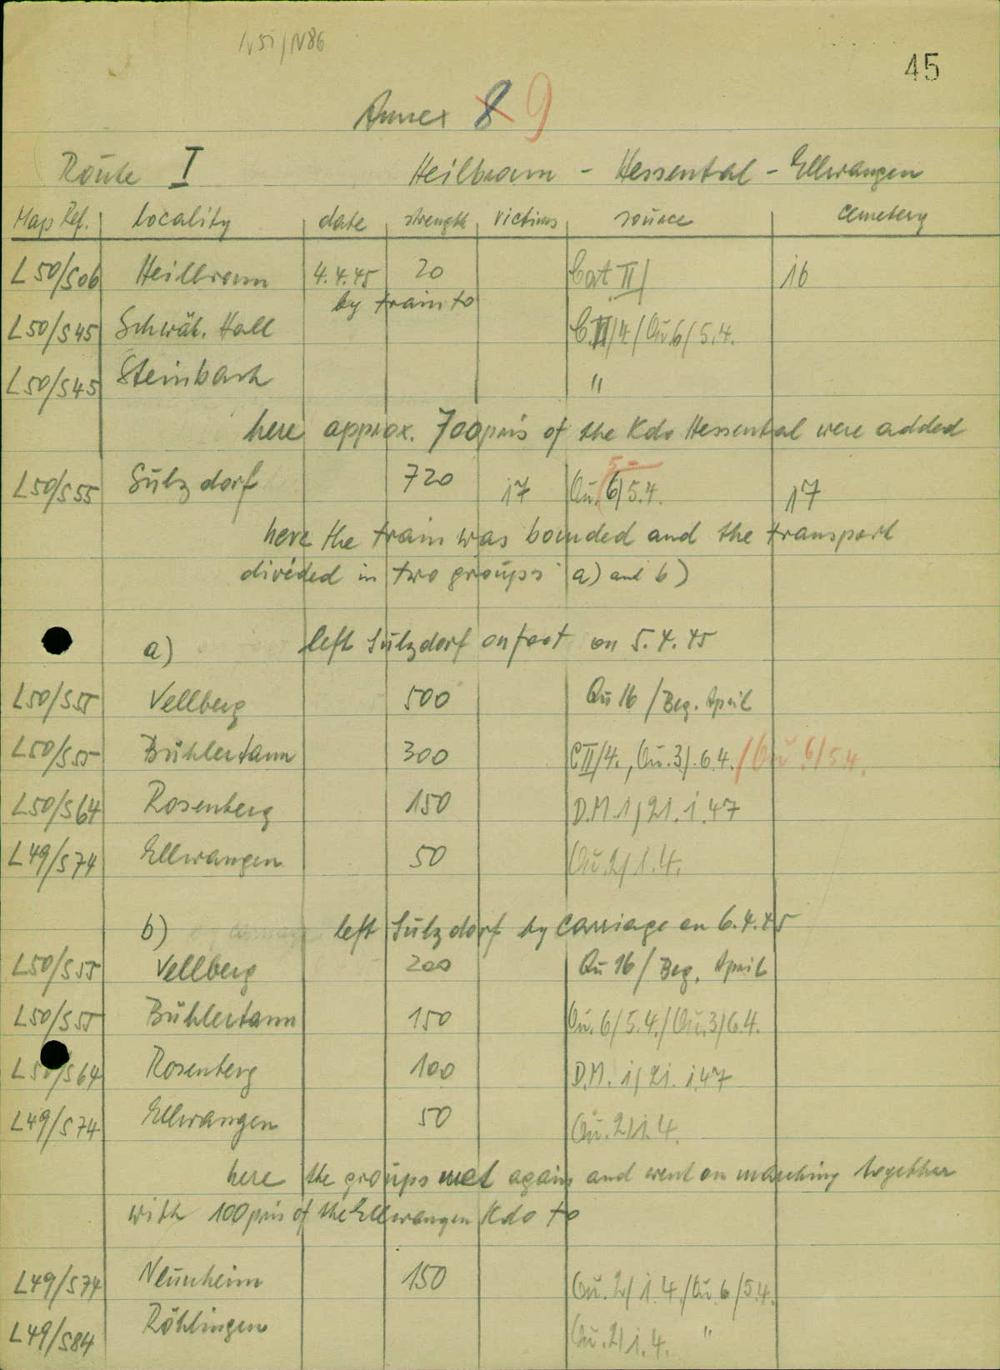 N51/N86
45
Annex 8 9
Route I Heilbronn - Hessental - Ellwangen
Map Ref. locality date strength victims source cemetery
L50/S06 Heilbronn 4.4.45 20 Cat II/ 16
by train to
L50/S45 Schwäb. Hall C.II/4/Qu.6/5.4.
L50/S45 Steinbach "
here approx. 700 pris of the Kdo Hessental were added
L50/S55 Sulzdorf 720 17 Qu. 6/5.4. 17
here the train was bombed and the transport
divided in two groups a) and b)
a) left Sulzdorf on foot on 5.4.45
L50/S55 Vellberg 500 Qu 16/Beg. April
L50/S55 Bühlertann 300 CII/4., Qu.3/.6.4. /Qu 6/5.4.
L50/S64 Rosenberg 150 D.M.1/21.1.47
L49/S74 Ellwangen 50 Qu.2/1.4.
b) left Sulzdorf by carriage on 6.4.45
L50/S55 Vellberg 200 Qu 16/Beg. April
L50/S55 Bühlertann 150 Qu.6/5.4./Qu.3/6.4.
L50/S64 Rosenberg 100 D.M. 1/21.1.47
L49/S74 Ellwangen 50 Qu.2/1.4.
here the groups met again and went on marching together
with 100 pris of the Ellwangen Kdo to
L49/S74 Neunheim 150 Qu.2/1.4./Qu.6/5.4.
L49/S84 Röhlingen Qu.2/1.4. "